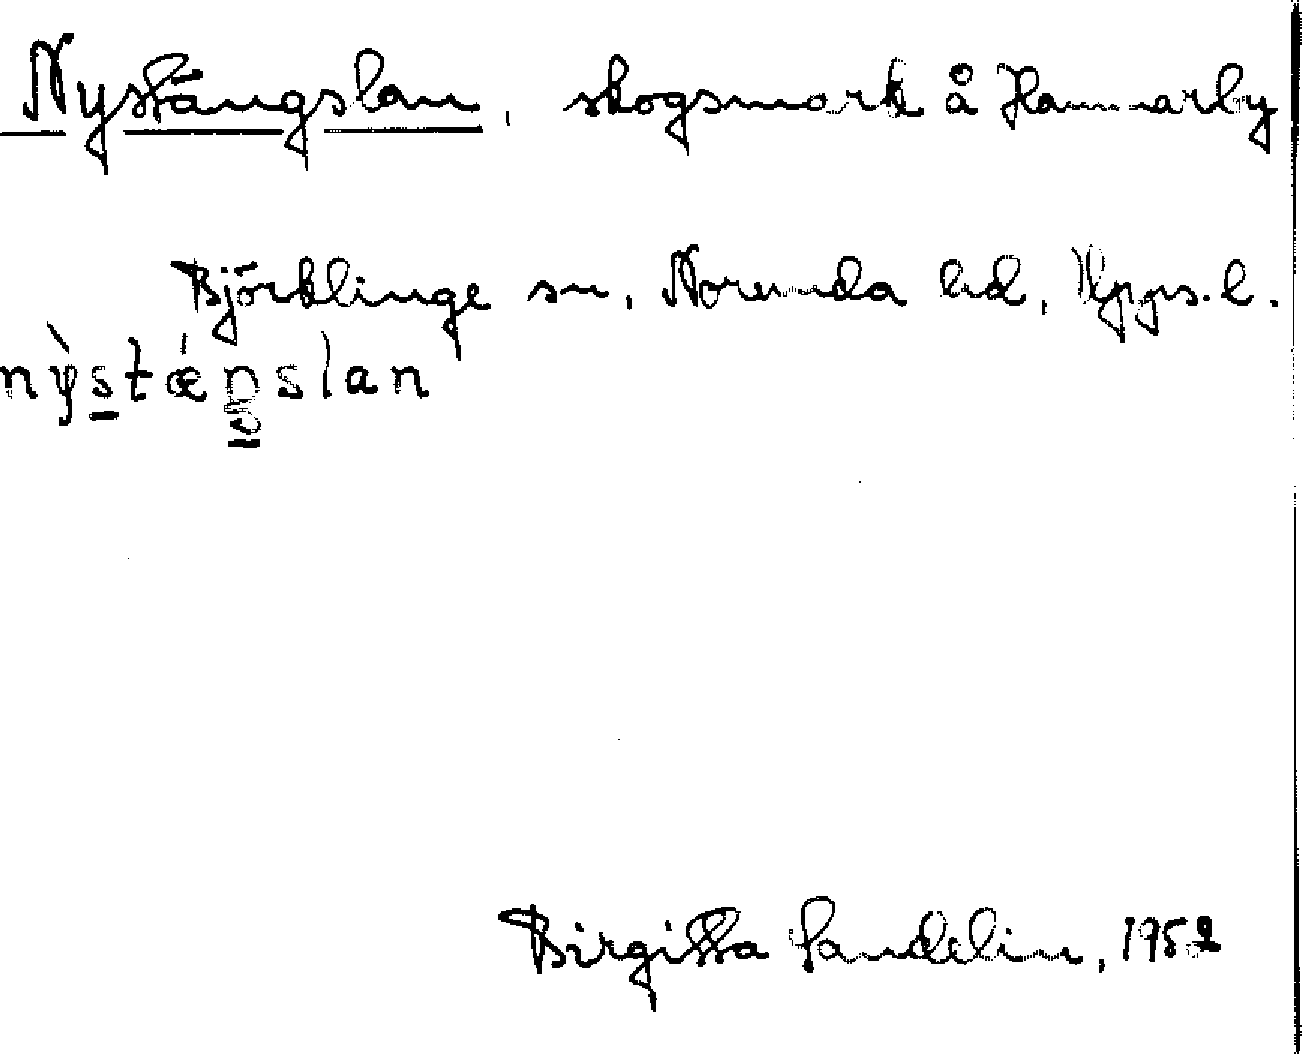 Nystängslan, skogsmark å Hammarby
Björklinge sn, Norunda hd, Upps. l.
nỳstǽŋslan
Birgitta Sandelin, 1952